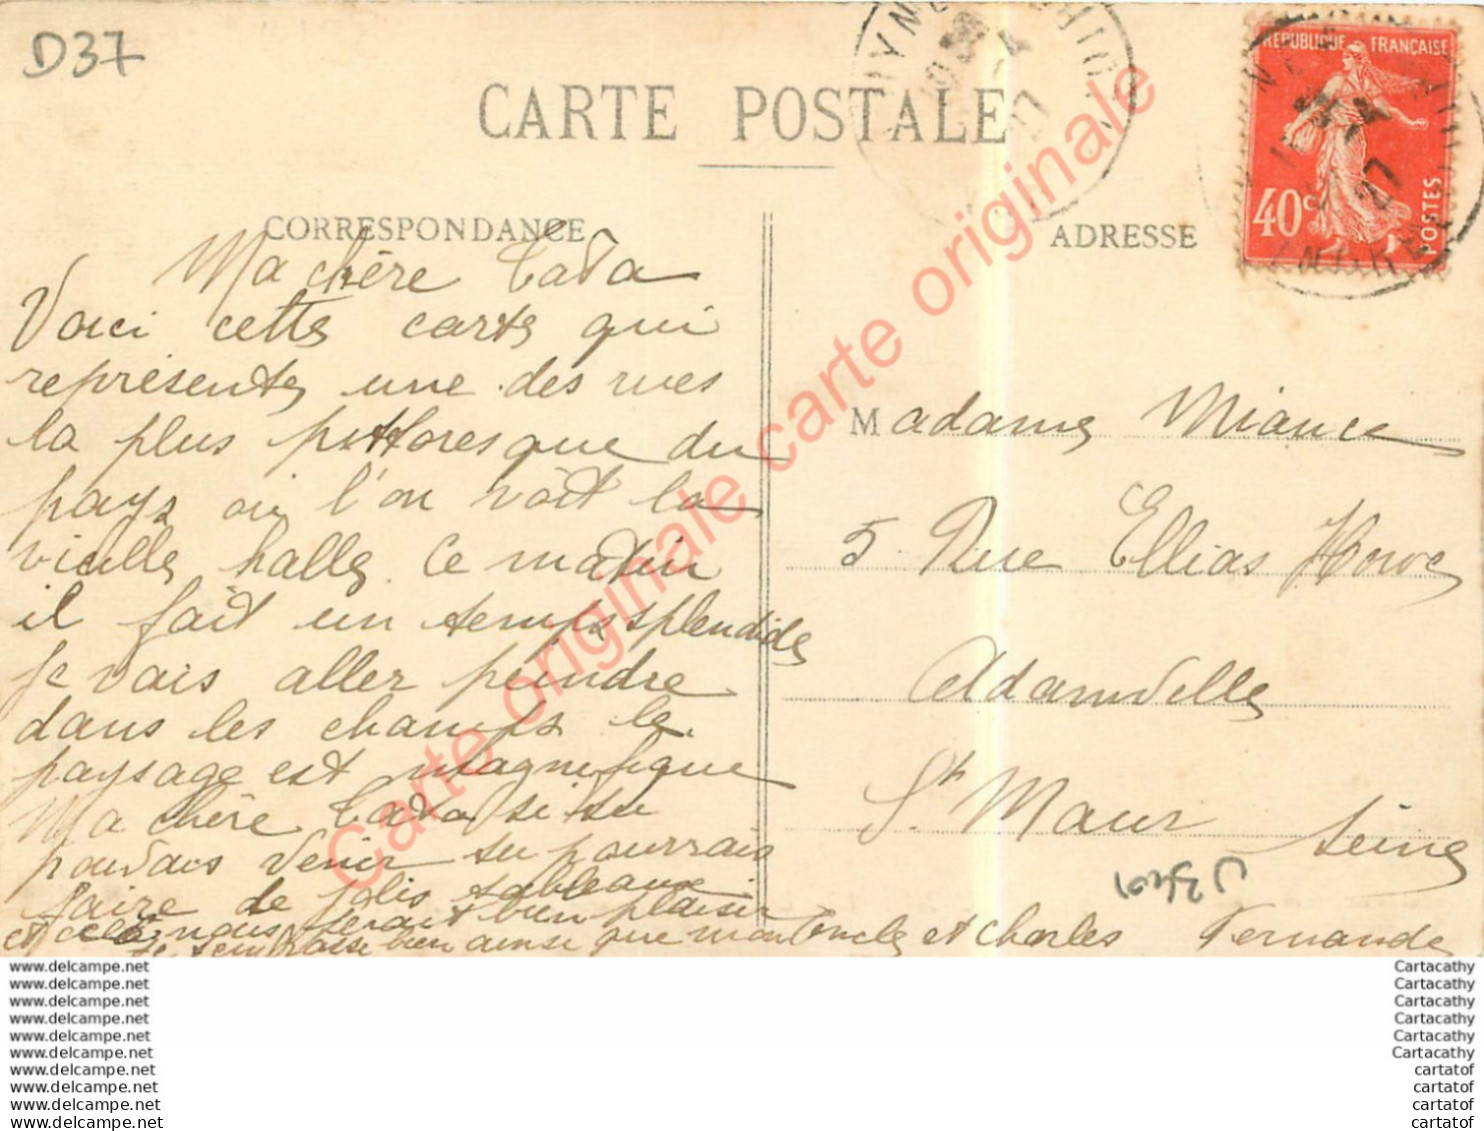 D37
CARTE POSTALE
RÉPUBLIQUE FRANÇAISE
40c
POSTES
CORRESPONDANCE
ADRESSE
Ma chère Tata
Voici cette carte qui
représente une des rues
la plus pittoresque du
pays où l'on voit la
vieille halle. Ce matin
il fait un temps splendide
je vais aller peindre
dans les champs le
paysage est magnifique
Ma chère Tata si tu
pouvais venir tu pourrais
faire de jolis tableaux
et cela nous ferait bien plaisir
Je t'embrasse bien ainsi que mon Oncle et Charles Fernande
Madame Miance
5 Rue Ellias Howe
Adamville
St Maur Seine
Carte originale carte originale carte originale
www.delcampe.net
www.delcampe.net
www.delcampe.net
www.delcampe.net
www.delcampe.net
www.delcampe.net
www.delcampe.net
www.delcampe.net
www.delcampe.net
www.delcampe.net
Cartacathy
Cartacathy
Cartacathy
Cartacathy
Cartacathy
Cartacathy
cartatof
cartatof
cartatof
cartatof